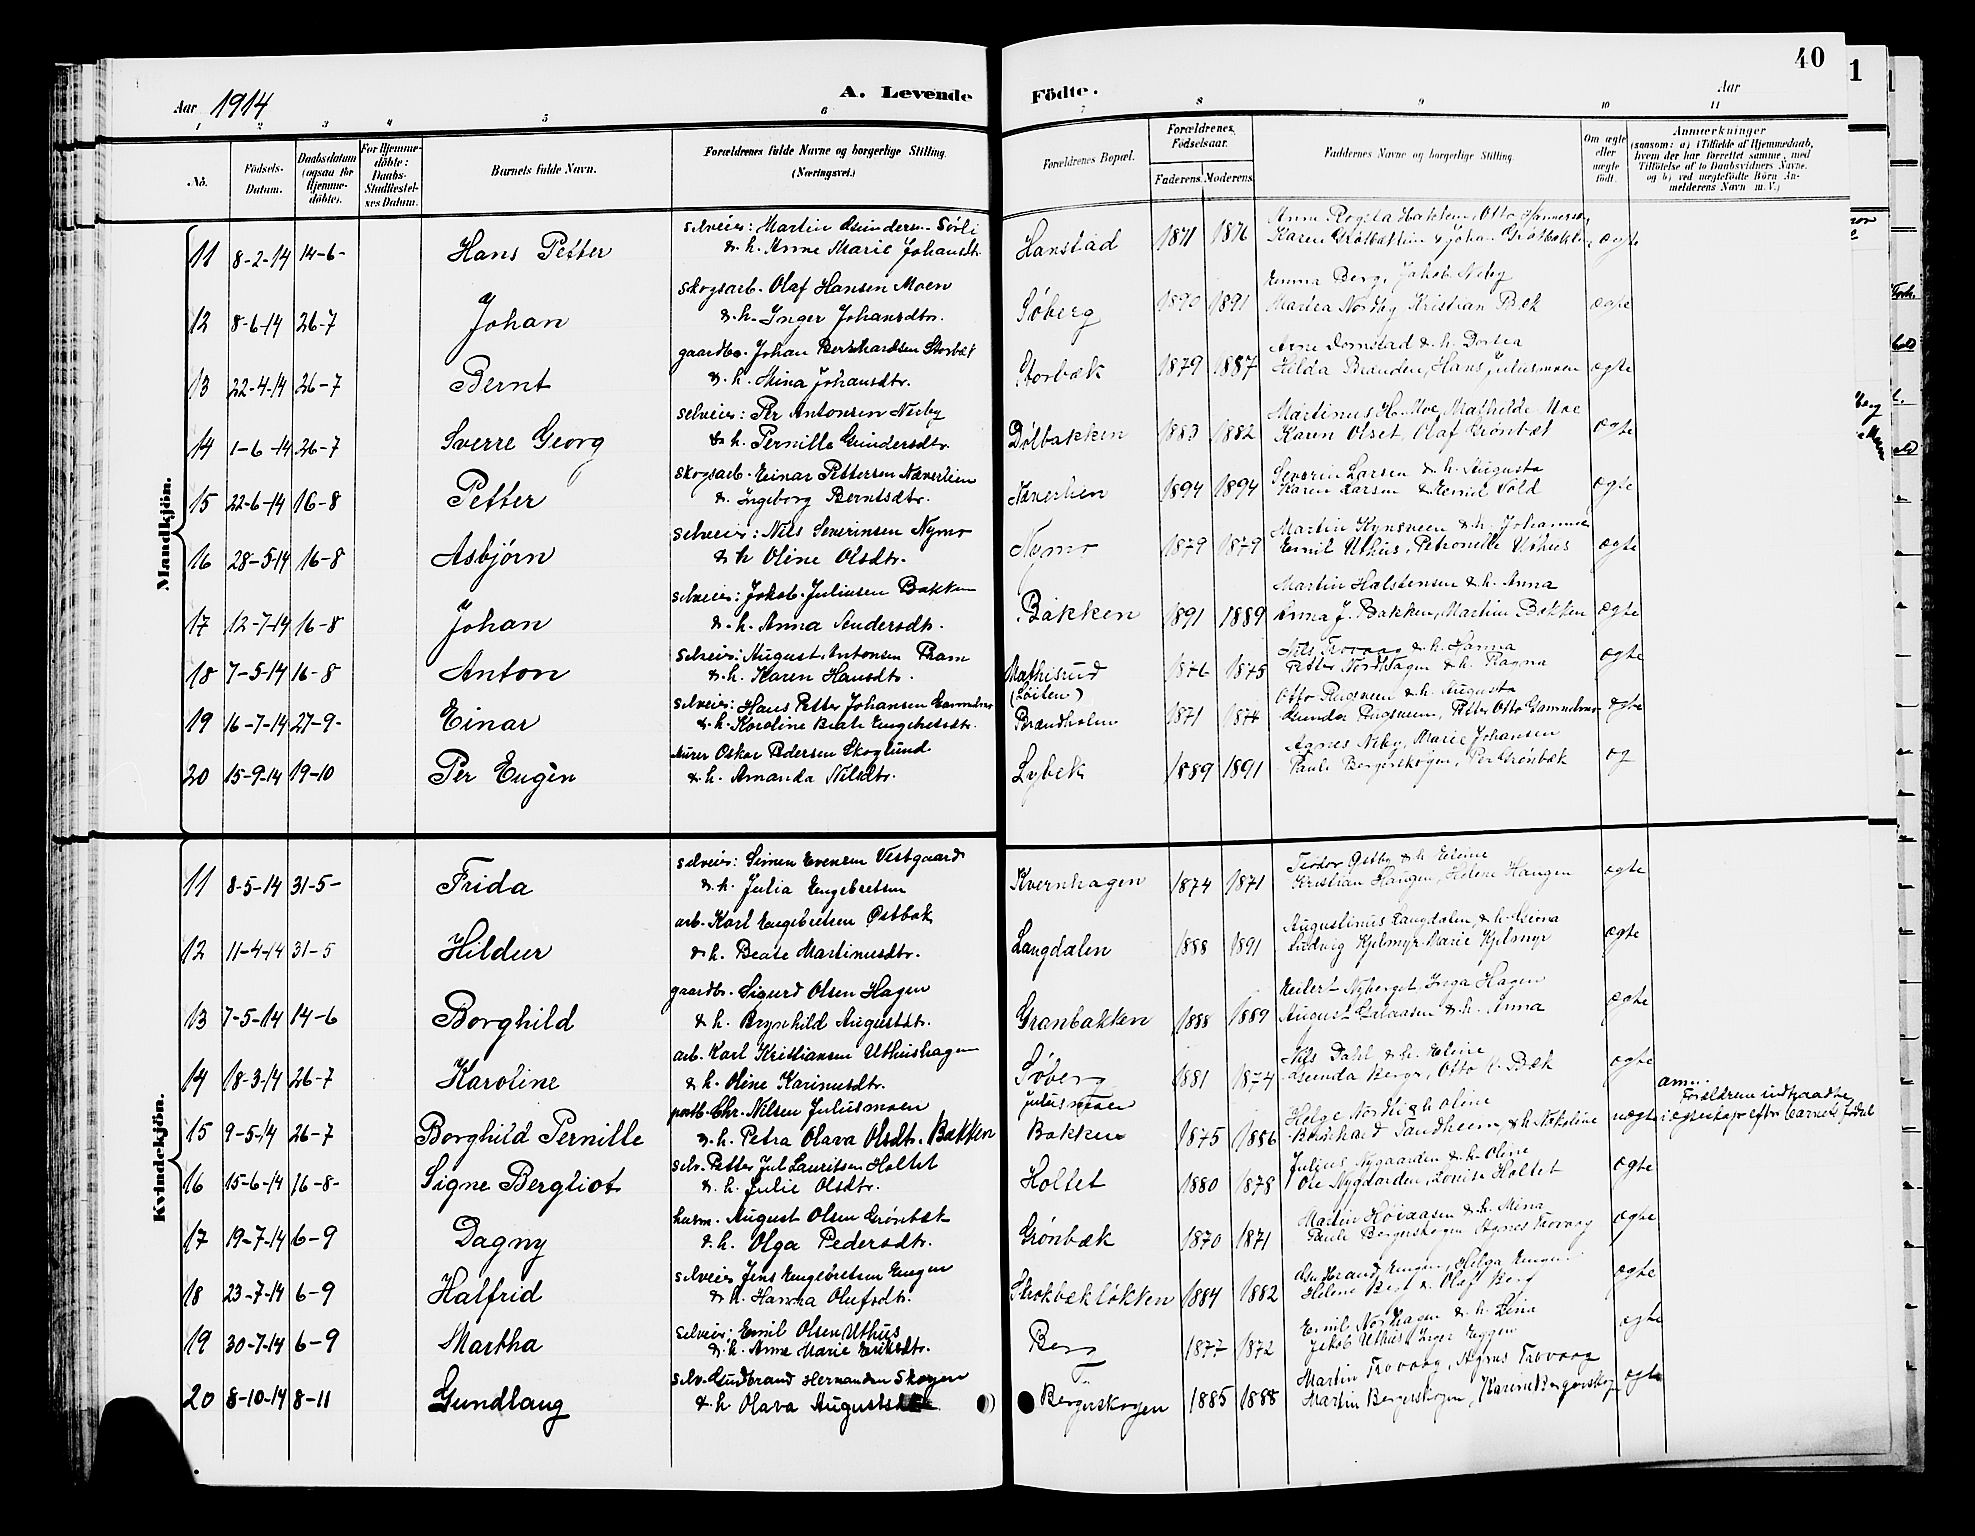 40
1
Aar 1914
A. Levende
Födte.
Aar
1 2 3 4 5 6 7 8 9 10 11
No.
Födsels-Datum.
Daabsdatum (ogsaa for Hjemme-döbte).
For Hjemme-döbte: Daabs-Stadfæstel-ses Datum.
Barnets fulde Navn.
Forældrenes fulde Navne og borgerlige Stilling. (Næringsvei.)
Forældrenes Bopæl.
Forældrenes Födselsaar.
Faderens. Moderens.
Faddernes Navne og borgerlige Stilling.
Om ægte eller uægte födt.
Anmærkninger (saasom: a) i Tilfælde af Hjemmedaab, hvem der har forrettet samme, med Tilföielse af to Daabsvidners Navne, og b) ved uægtefödte Börn An-melderens Navn m. V.)
Mandkjön.
11 8-2-14 14-6- Hans Petter
selveier: Martin Gundersen Sörli
& h. Anne Marie Johansdtr.
Hanstad 1871 1876
Karen Grötbækken & Johan Grötbækken ægte
12 8-6-14 26-7 Johan
skogsarb. Olaf Hansen Moen
& h. Inger Johansdtr.
Söberg 1890 1891
Emma Berg, Jakob Neby
Martea Nordby Kristian Bæk ægte
13 22-4-14 26-7 Bernt
gaardbr. Johan Bernhardsen Storbæk
& h. Mina Johansdtr.
Storbæk 1879 1887
Arne Domstad & h. Dortea
Hilda Brænden, Hans Julusmoen ægte
14 1-6-14 26-7 Sverre Georg
selveier: Per Antonsen Neby
& h. Pernille Gundersdtr.
Dölbakken 1883 1882
Martinus H. Moe, Mathilde Moe
Karen Olset, Olaf Grönbæk ægte
15 22-6-14 16-8 Petter
skogsarb. Einar Pettersen Næverlien
& Ingeborg Berntsdtr.
Næverlien 1894 1894
Severin Larsen & h. Augusta
Karen Larsen & Emil Vold ægte
16 28-5-14 16-8 Asbjörn
selveier: Nils Severinsen Nymo
& h Oline Olsdtr.
Nymo 1879 1879
Martin Kynsveen & h. Johanna
Emil Uthus, Petronille Uthus ægte
17 12-7-14 16-8 Johan
selveier: Jakob Juliusen Bakken
& h. Anna Andersdtr.
Bakken 1891 1889
Martin Halstensen & h. Anna
Anna J. Bakken, Martin Bakken ægte
18 7-5-14 16-8 Anton
selveier: August Antonsen Fram
& h. Karen Hansdtr.
Mathisrud
(Löiten) 1876 1875
Nils Trovaag & h. Hanna
Petter Nordhagen & h. Ragna ægte
19 16-7-14 27-9- Einar
selveier: Hans Petter Johansen
& h. Karoline Beate Engebretsdtr.
Brændholen 1871 1874
Otto Rugsveen & h. Augusta
Gunda Rugsveen, Petter Otto ægte
20 15-9-14 19-10 Per Eugèn
murer Oskar Pedersen Skoglund
& h. Amanda Nilsdtr.
Lybek 1889 1891
Agnes Neby, Marie Johansen
Pauli Bergerskogen, Per Grönbæk æg
Kvindekjön.
11 8-5-14 31-5- Frida
selveier: Simen Evensen Vestgaard
& h. Julia Engebretsen
Kvernhagen 1874 1871
Teodor Östby & h. Eline
Kristian Haugen, Helene Haugen ægte
12 11-4-14 31-5 Hildur
arb. Karl Engebretsen Östbæk
& h. Beate Martinusdtr.
Langdalen 1888 1891
Augustinus Langdalen & h.
Ludvig Kjelmyr Marie Kjelmyr ægte
13 7-5-14 14-6 Borghild
gaardbr. Sigurd Olsen Hagen
& h. Brynhild Augustdtr.
Granbakken 1888 1889
Eilert Nyberget, Inga Hagen
August & h. Anna ægte
14 18-3-14 26-7 Karoline
arb. Karl Kristiansen Uthushagen
& h. Oline Karinusdtr.
Söberg 1881 1874
Nils Dahl & h. Eline
Gunda Berg, Otto K. Bæk ægte
15 9-5-14 26-7 Borghild Pernille
postb. Chr. Nilsen Julusmoen
& h. Petra Olava Olsdtr. Bakken
Julusmoen
Bakken 1875 1886
Helge Nordli & h Oline
Bernhard Sandheim & h Nikoline uægte
anm. Forældrene indtraadte
i ægteskap efter barnets födsel
16 15-6-14 16-8- Signe Bergliot
selv. Petter Jul Lauritsen Holtet
& h. Julie Olsdtr.
Holtet 1880 1878
Julius Nygaarden & h. Oline
Ole Nygaarden, Lovise Holtet ægte
17 19-7-14 6-9 Dagny
husm. August Olsen Grönbæk
& h. Olga Pedersdtr.
Grönbæk 1870 1871
Martin & h. Mina
Pauli Bergerskogen Agnes Trovaag ægte
18 23-7-14 6-9 Halfrid
selveier Jens Engebretsen Engen
& h. Hanna Olufsdtr.
Skokbækløkken 1884 1882
Gudbrand Engen, Helga Engen
Helene Berg & Olaf Berg ægte
19 30-7-14 6-9 Martha
selveier: Emil Olsen Uthus
& h. Anne Marie Eriksdtr.
Berg 1877 1872
Emil Nordhagen & h. Lina
Jakob Uthus, Inger Eggen ægte
20 8-10-14 8-11 Gundlaug
selv. Gudbrand Hermansen Skogen
& h Olava Augusts
Bergerskogen 1885 1888
Martin Trovaag, Agnes Trovaag
Martin Bergerskogen, Karen Bergerskog ægte